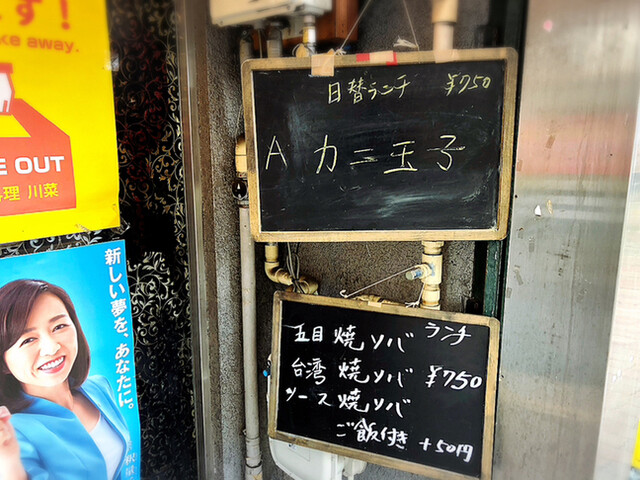 す!
ke away.
E OUT
理 川菜
新しい夢を、あなたに。
日替ランチ ¥750
A カニ玉子
五目焼ソバ ランチ
台湾焼ソバ ¥750
ソース焼ソバ
ご飯付き +50円